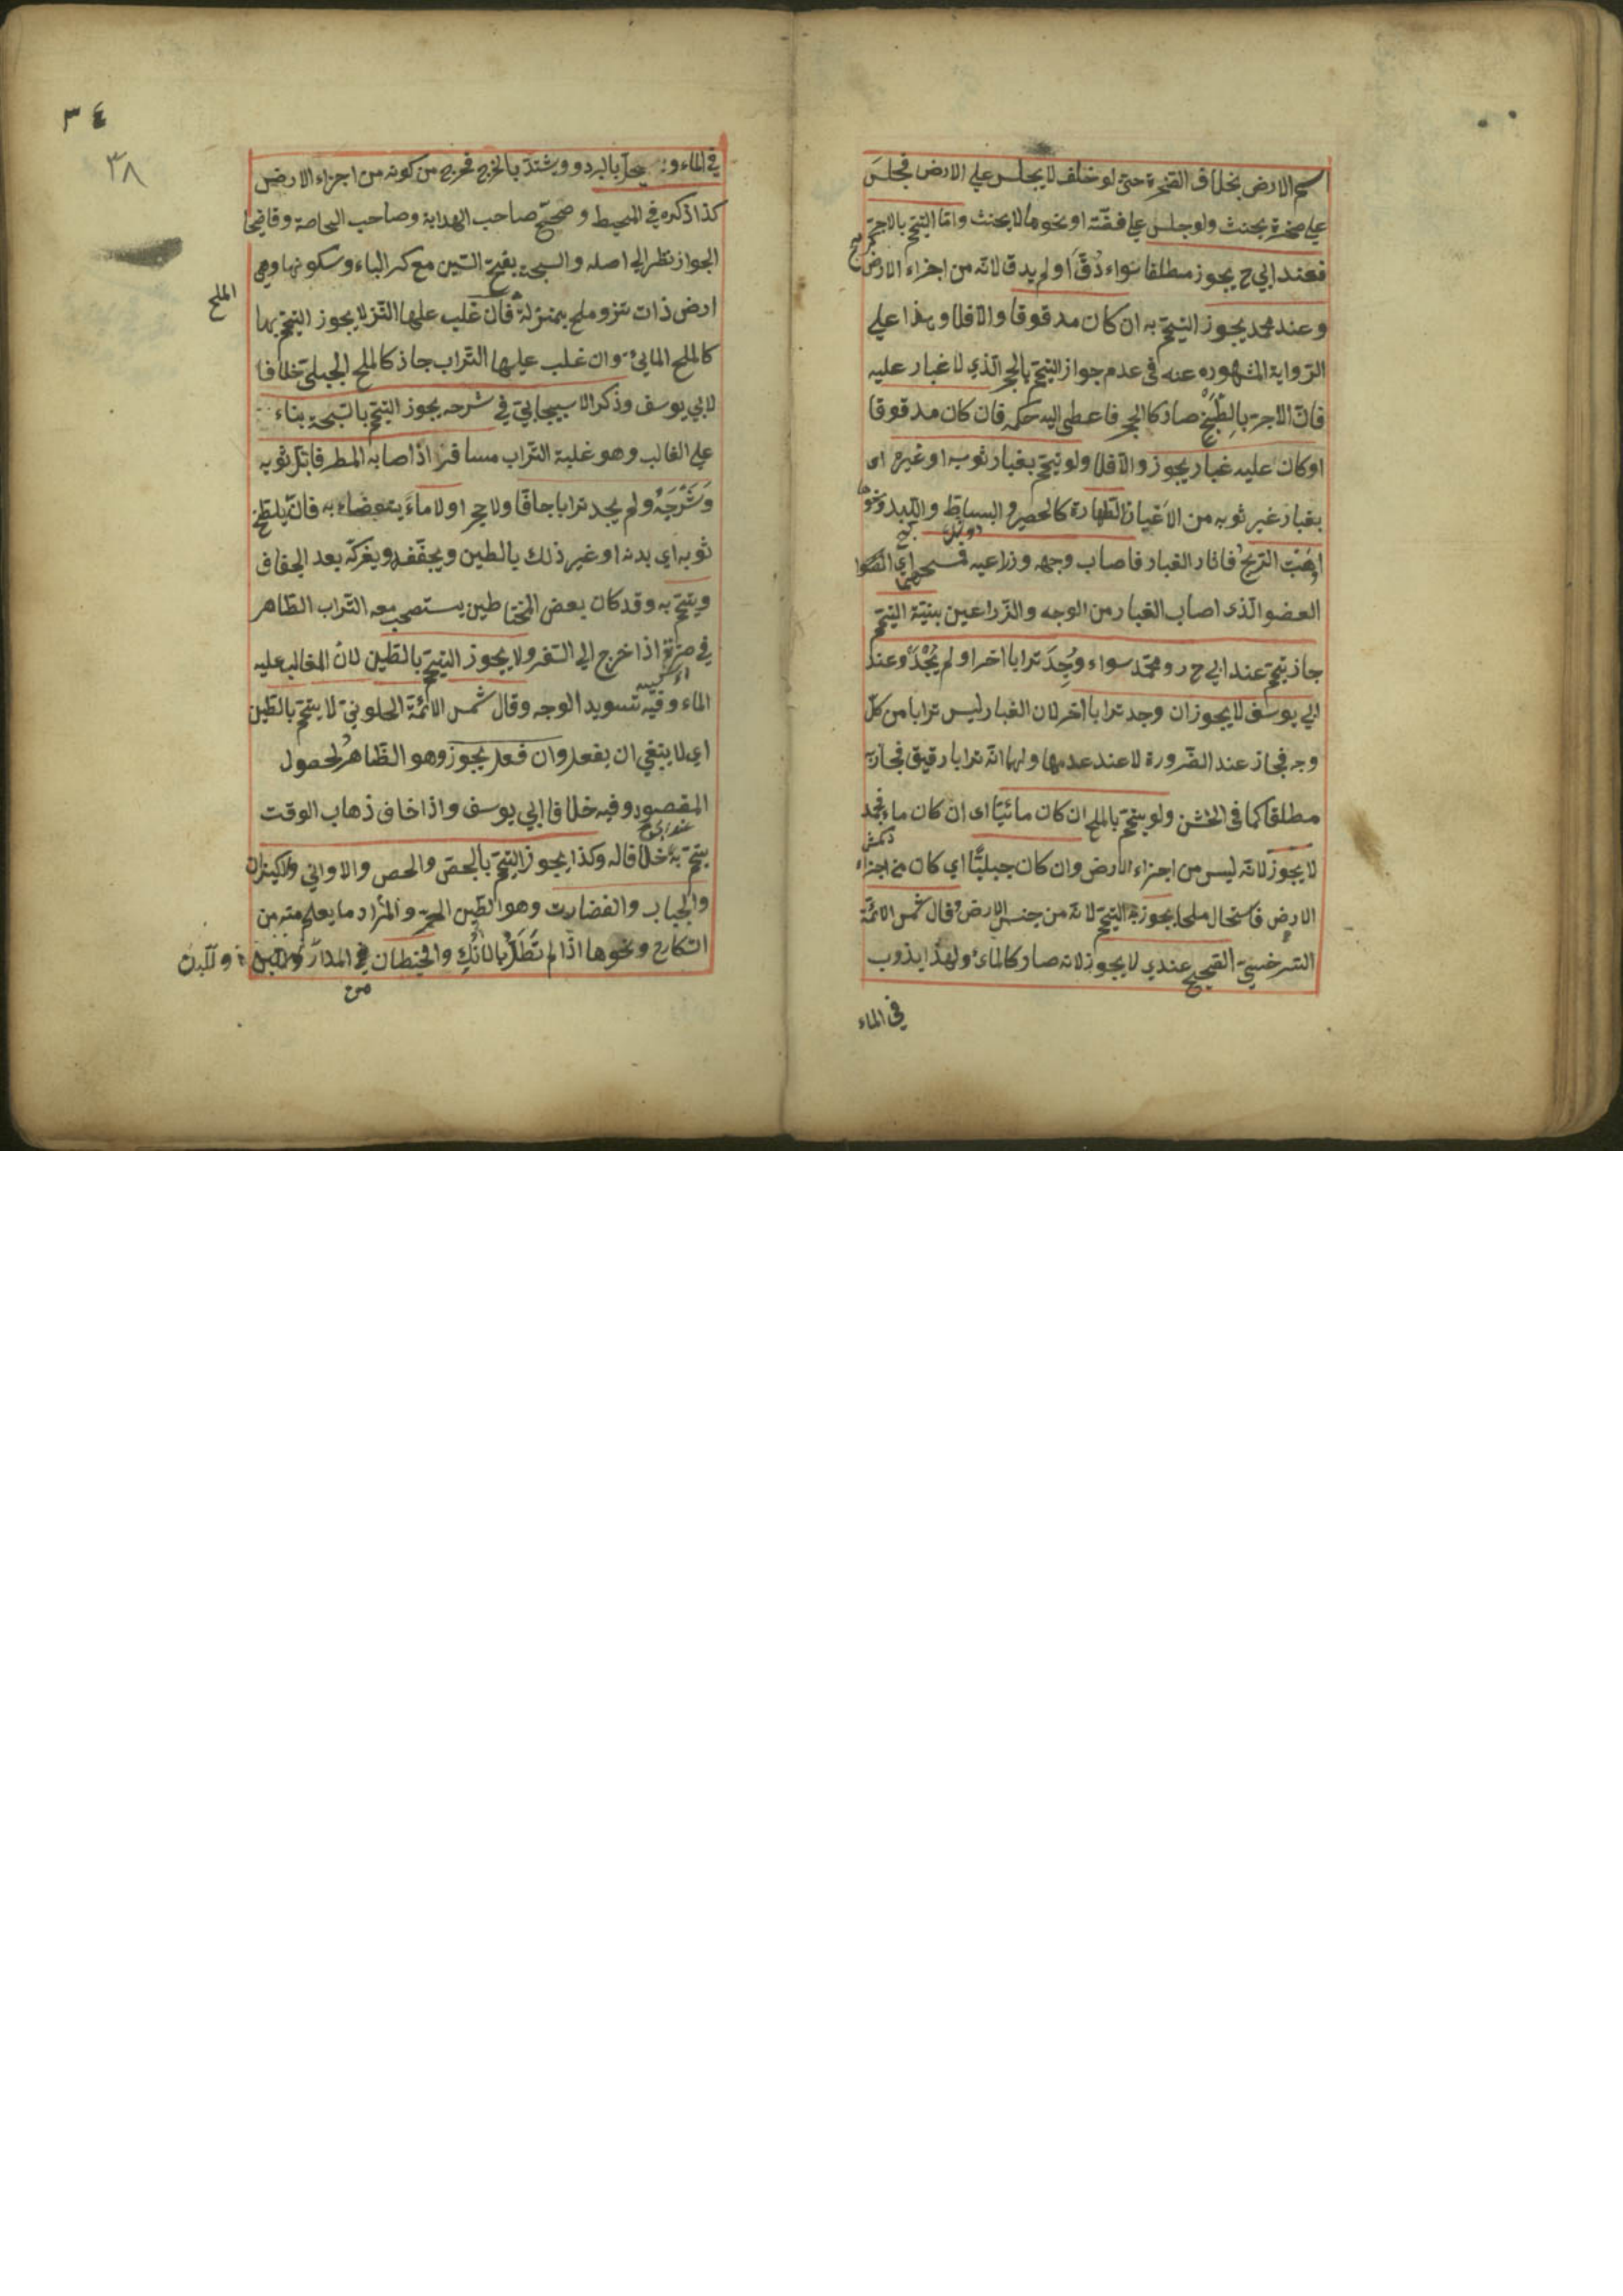 اسم الارض بخلاف الصخرة حتى لو حلف لا يجلس على الارض فجلس
على صخرة يحنث ولو جلس على فضة او نحوها لا يحنث واما التيمم بالاجر
فعند ابي ح يجوز مطلقا سواء دُقّ او لم يدق لانه من اجزاء الارض
وعند محمد يجوز التيمم به ان كان مدقوقا والا فلا وهذا على
الرواية المشهورة عنه في عدم جواز التيمم بالحجر الذي لا غبار عليه
فان الاجر بالطبخ صار كالحجر فاعطى اليه حكمه فان كان مدقوقا
او كان عليه غبار يجوز والا فلا ولو تيمم بغبار ثوبه او غيره اى
بغبار غير ثوبه من الاعيان الطاهرة كالحصير و البساط واللبد ونحوها
او هبت الريح فاثار الغبار فاصاب وجهه وذراعيه فمسحهما اي
العضو الذى اصاب الغبار من الوجه والذراعين بنية التيمم
جاز تيممه عند ابي ح رو محمد سواء وُجِدَ ترابا اخر او لم يُجْدَ وعند
ابي يوسف لا يجوز ان وجد ترابا اخر لان الغبار ليس ترابا من كل
وجه فجاز عند الضرورة لا عند عدمها ولهما انه ترابا رقيق فجاز به
مطلقا كما في الخشن ولو تيمم بالملح ان كان مائيّا اى ان كان ماء فجمد
لا يجوز لانه ليس من اجزاء الارض وان كان جبليًّا اي كان من اجزاء
الارض فاستحال ملحا يجوز به التيمم لانه من جنس الارض وقال شمس الائمة
السرخسي الصحيح عندي لا يجوز لانه صار كالماء ولهذا يذوب
في الماء
٣٤
٣٨
في الماء و ينحل بالبرد ويشتد بالحر فخرج من كونه من اجزاء الارض
كذا ذكره في المحيط و صحح صاحب الهداية وصاحب الخلاصة وقاضيخا
الجواز نظرا الى اصله والسبخة بفتح السين مع كسر الباء وسكونها وهي
ارض ذات نز وملح بمنزلة فان غلب عليها النز لا يجوز التيمم بها
الملح
كالملح المائي وان غلب عليها التراب جاز كالملح الجبلي خلافا
لابي يوسف وذكر الاسبيجابي في شرحه يجوز التيمم بالسبخة بناء
على الغالب وهو غلبة التراب مسافر اذا اصابه المطر فابتل ثوبه
وَسَرْجَهُ ولم يجد ترابا جافّا ولا حجرا ولا ماءً يتوضاء به فانه يلطخ
ثوبه اي بدنه او غير ذلك بالطين ويجففه ويفركه بعد الجفاف
ويتيمم به وقد كان بعض المحتاطين يستصحب معه التراب الطاهر
في صرّة اذا خرج الى السفر ولا يجوز التيمم بالطين لان الغالب عليه
الماء وفيه تسويد الوجه وقال شمس الائمة الحلوني لا يتيمم بالطين
اي لا ينبغي ان يفعل وان فعل يجوز وهو الظاهر لحصول
المقصود وفيه خلاف ابي يوسف واذا خاف ذهاب الوقت
يتيمم به خلافا له وكذا يجوز التيمم بالجص والحص والاواني والكيزان
والحباب والغضارت وهو الطين الحر والمراد ما يعلم منه من
السكارج ونحوها اذا لم تُطْلَ بالانُكِ والحيطان في المدر واللبن
من